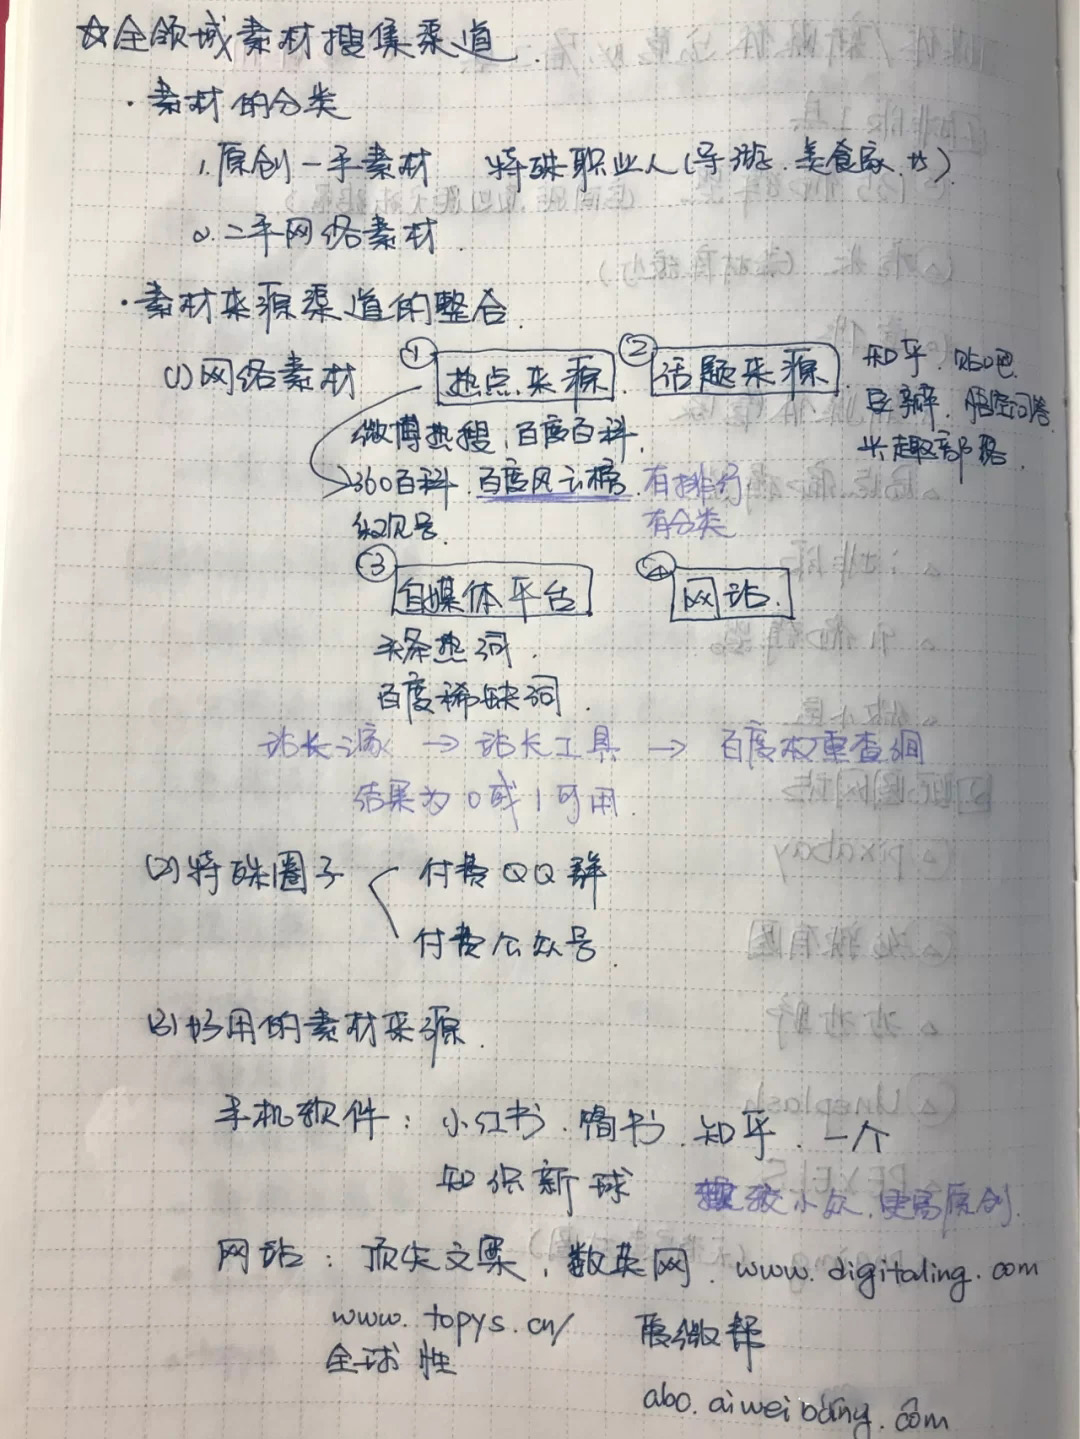 ☆全领域素材搜集渠道.
·素材的分类
1.原创一手素材 特殊职业人(导游.美食家.etc).
2.二手网络素材.
·素材来源渠道的整合.
(1)网络素材 ①热点来源. ②话题来源. 知乎.贴吧.
豆瓣.悟空问答.
兴趣部落.
微博热搜,百度百科.
360百科.百度风云榜. 有排行
有分类
③自媒体平台 ④网站.
头条热词.
百度稀缺词.
站长之家 → 站长工具 → 百度权重查询
结果为0或1可用.
(2)特殊圈子 付费QQ群
付费公众号.
(3)好用的素材来源.
手机软件: 小红书.简书.知乎.一个
知识新球 较小众,更高原创.
网站: 顶尖文案,数英网.www.digitaling.com
www.topys.cn/ 爱微帮
全球性
abo.aiweibang.com